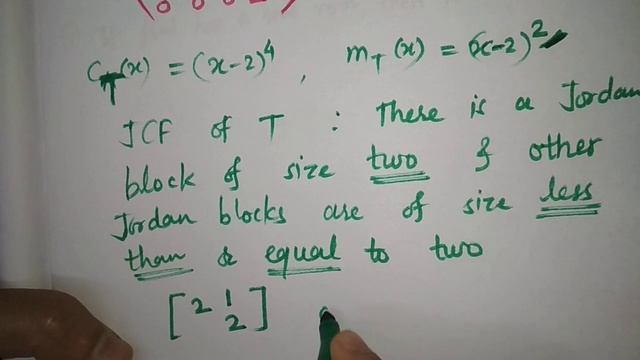 (0 0 0 2)
C_T(x) = (x-2)^4 , m_T(x) = (x-2)^2
JCF of T : There is a Jordan
block of size two & other
Jordan blocks are of size less
than & equal to two
[2 1
2]